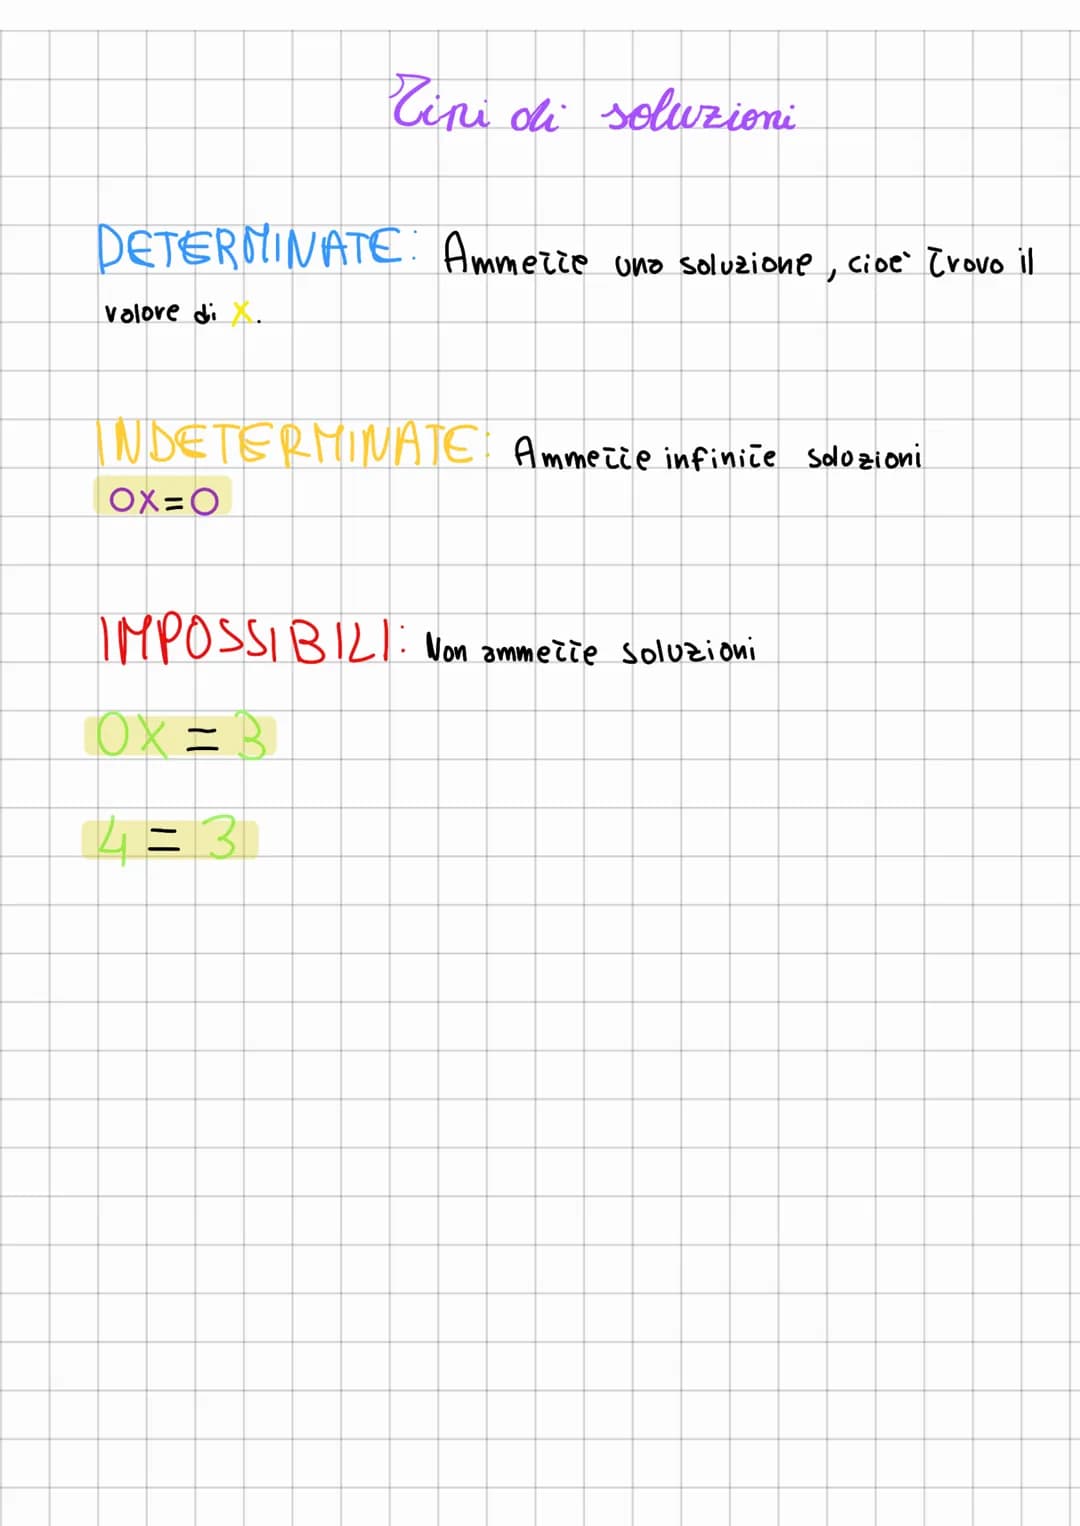 Tipi di soluzioni
DETERMINATE: Ammette una soluzione, cioè trovo il
valore di X.
INDETERMINATE: Ammette infinite soluzioni
0X=0
IMPOSSIBILI: Non ammette soluzioni
0X = 3
4 = 3